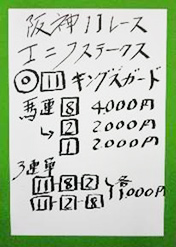 阪神11レース
エニフステークス
◎ 11 キングズガード
馬連 8 4,000円
↳ 2 2,000円
1 2,000円
3連単
11-8-2
11-2-8 1,000円